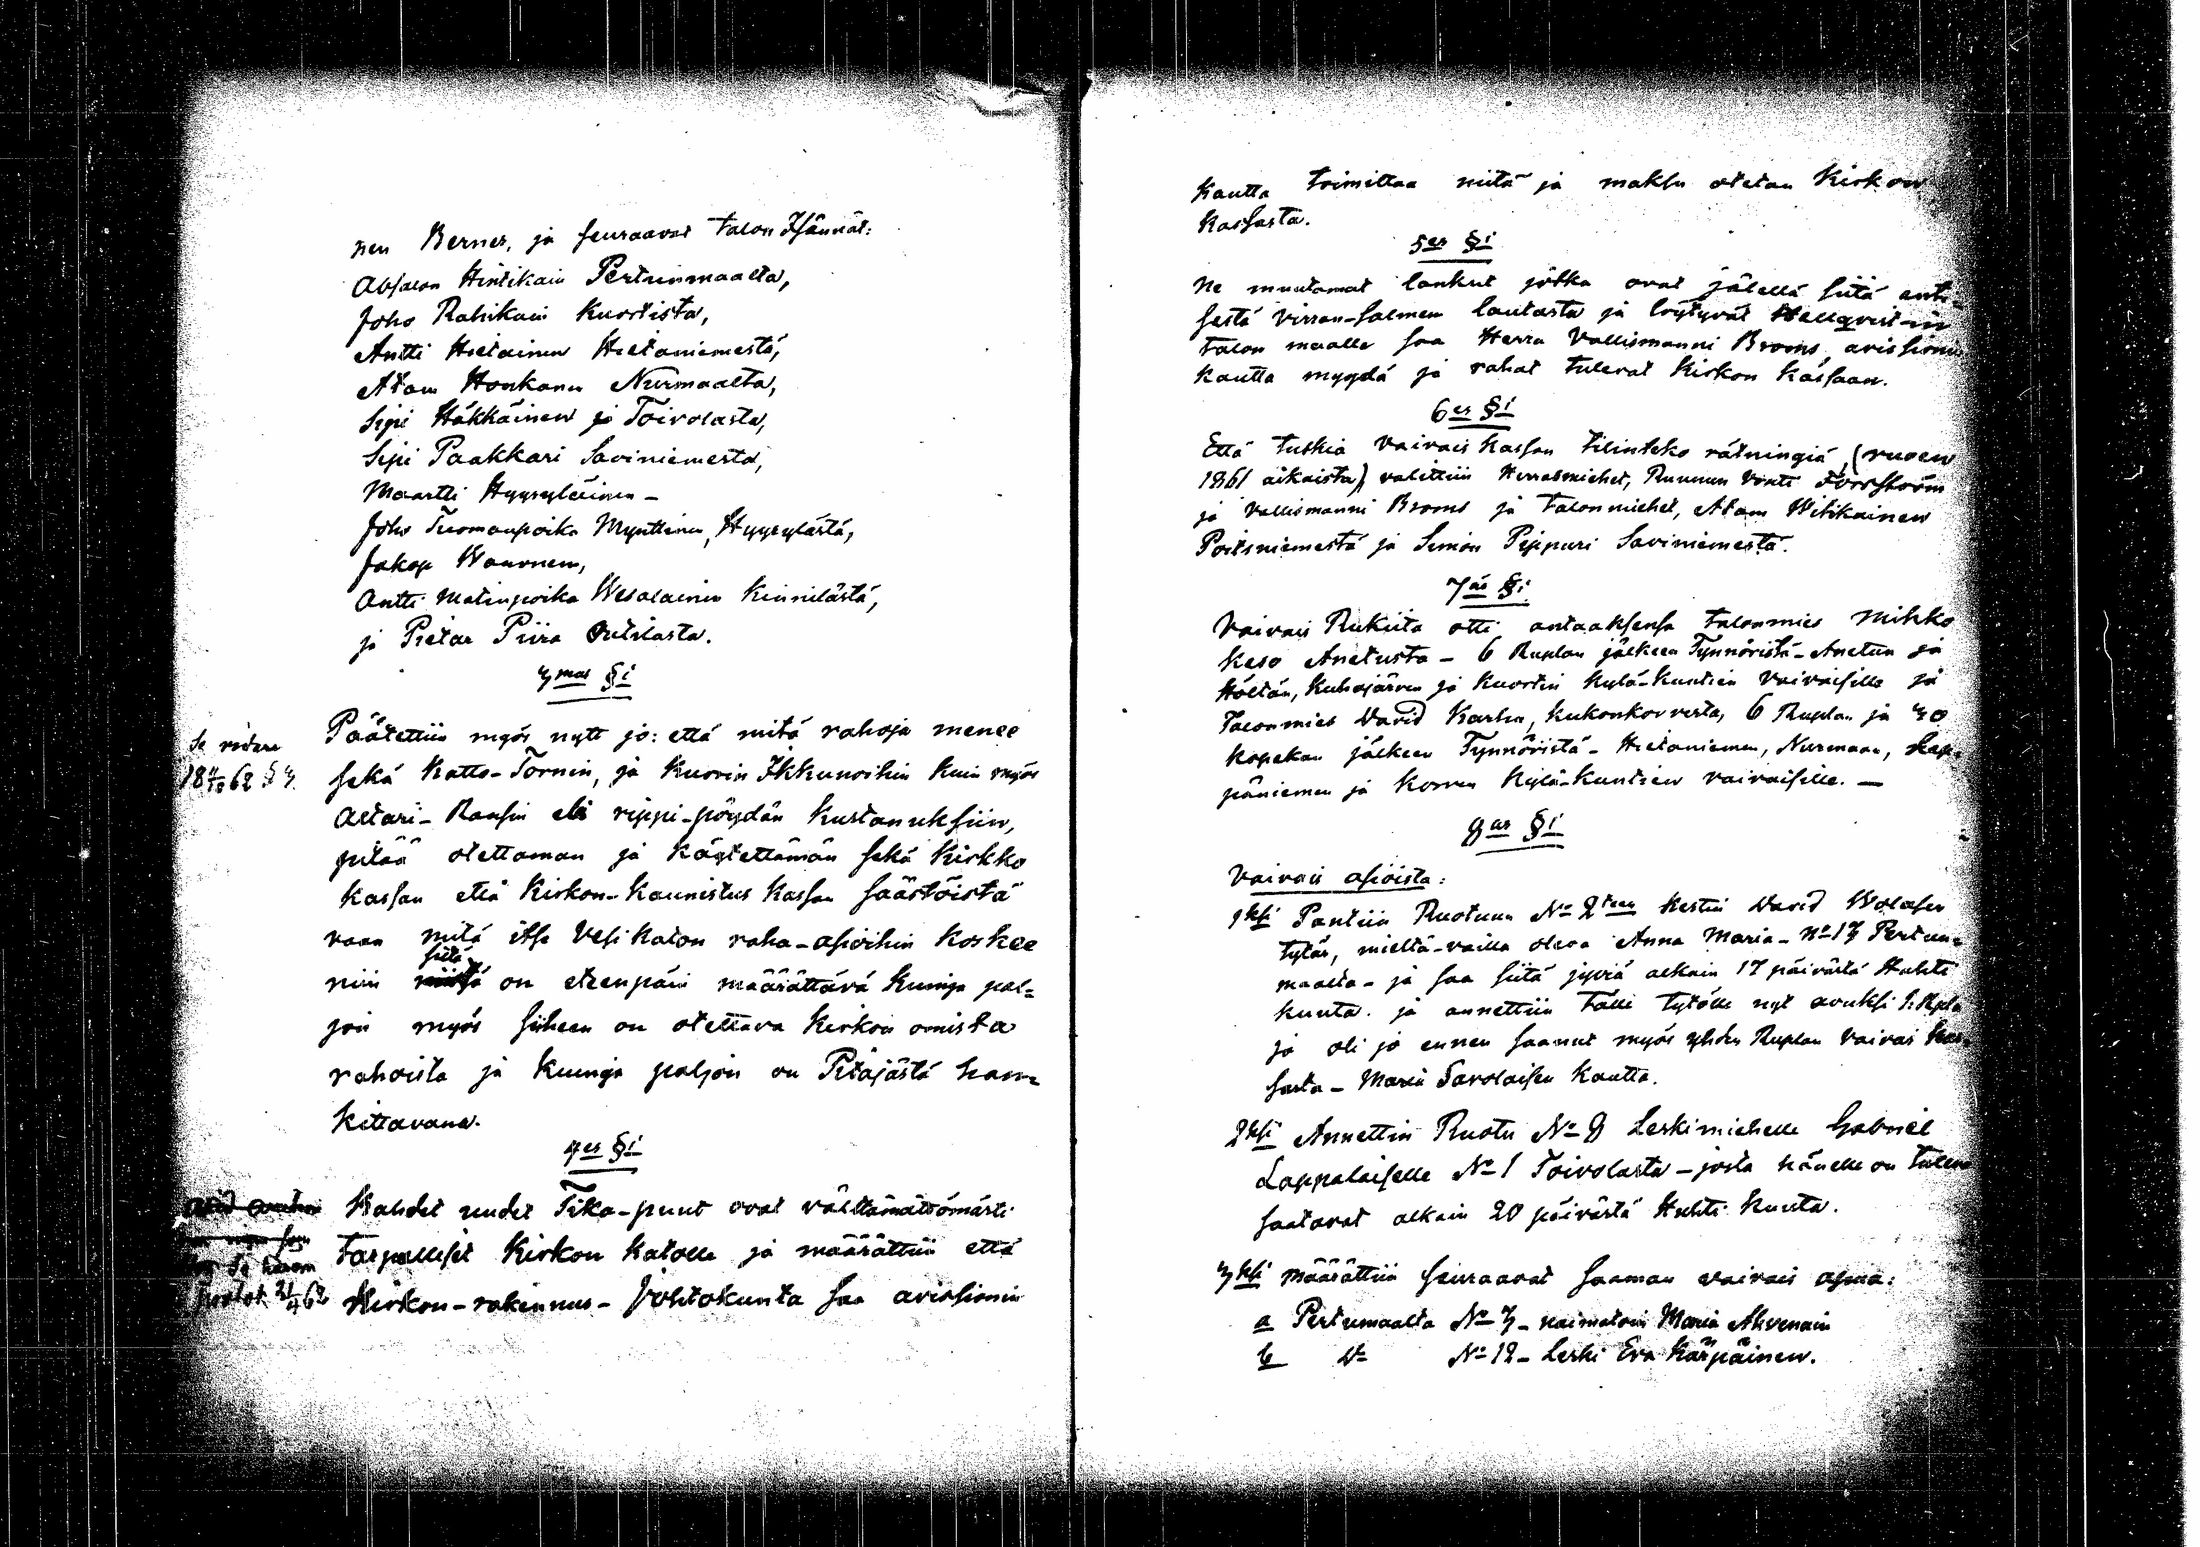 nen Berner, ja seuraavat talon Isännät:
Absalon Hintikain Pertunmaalta,
Joho Rahikain Kuortista,
Antti Hietainen Hietaniemestä,
Atam Honkanen Nurmaalta,
Sipi Häkkäinen ja Toivolasta,
Sipi Paakkari Saviniemestä,
Maartti Hyyryläinen –
Joho Tuomaanpoika Mynttinen, Hyyrylästä,
Jakop Waurnem,
Antti Matinpoika Wesalainen Kinnilästä,
ja Pietar Piira Outilasta.
3mas §i
Se vidare
18 62 § 3.
Päätettiin myös nytt jo: että mitä rahoja menee
sekä Katto-Tornin, ja Kuorin Ikkunoihin kuin myös
Altari-Raasin eli rippi-pöydän kustanuksiin,
pitää otettaman ja käytettämän sekä Kirkko
kassan että Kirkon-Kaunistus kassan säästöistä
vaan mitä itse Vesikaton raha-asioihin koskee
niin siitä on etzenpäin määrättävä kuinga pal=
jon myös siiheen on otettava Kirkon omista
rahoista ja kuinga paljon on Pitäjästä han=
kittavana.
4es §i
Se härom
protok. 21/4 62
Kahdet uudet Tika-puut ovat välttämättömästi
tarpelliset Kirkon katolle ja määrättiin että
Kirkon-rakennus-Johtokunta saa avissionin
kautta toimittaa niitä ja maksu otetan Kirkon
kassasta.
5es §i
Ne muutamat lankut jotka ovat jälellä siitä enti-
sestä Virran-salmen lautasta ja löytyvät Hellqvist-in
talon maalle saa Herra Vallismanni Broms, avissioni
kautta myydä ja rahat tulevat Kirkon Kassaan.
6es §i
Että tutkia vaivais kassan tilinteko rätningiä, (vuoen
1861 aikaista) valittiin Herrasmiehet, Ruunun Vouti Forsström
ja Vallismanni Broms ja talonmiehet, Atam Hitikainen
Poitsniemestä ja Simon Pippuri Saviniemestä.
7äs §i
Vaivais Rukiita otti antaaksensa talonmies Mikko
Keso Anetusta – 6 Ruplan jälkeen Tynnöristä – Anetun ja
Höltän, Kuhajärven ja Kuortin kylä-kuntien vaivaisille ja
Talonmies David Karhu, Kukonkorvesta, 6 Ruplan ja 30
kopekan jälkeen Tynnöristä – Hietaniemen, Nurmaan, Lap-
päniemen ja Korven kylä-kuntien vaivaisille. –
8as §i
Vaivais asioista:
1ksi Pantiin Ruotuun No 2teen Kestin David Wolasen
tytär, mieltä-vailla oleva Anna Maria – No 17 Pertun=
maalta – ja saa siitä jyviä alkain 17 päivästä Huhti
kuuta. ja annettiin tälle tytölle nyt avuksi 1: Rupla
ja oli jo ennen saanut myös yhden Ruplan vaivais kas-
sasta – Maria Savolaisen kautta.
2ksi Annettiin Ruotu No 8 Leskimiehelle Gabriel
Lappalaiselle No 1 Toivolasta – josta hänelle on tuleva
saatavat alkain 20 päivästä Huhti kuuta.
3ksi määrättiin seuraavat saaman vaivais apua:
a Pertumaalta No 7 – naimatoin Maria Ahvenain
b Do No 12 – Leski Eva Kärpäinen.